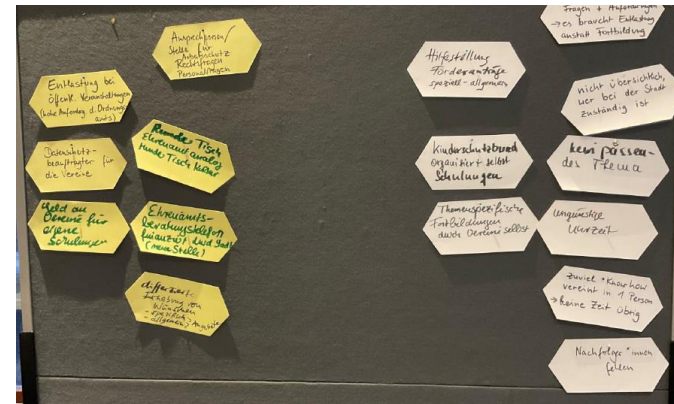 Ansprechperson/
Stelle für
Arbeitsschutz
Rechtsfragen
Personalfragen
Entlastung bei
öffentl. Veranstaltungen
(hohe Anforderg. d. Ordnungs-
amts)
Datenschutz-
beauftragter für
die Vereine
Runder Tisch
Ehrenamt analog
runder Tisch Kultur
Geld an
Vereine für
eigene
Schulungen
Ehrenamts-
beratungstelefon
finanziert durch Stadt
(neue Stelle)
differzierte
Erhebung von
Wünschen
- spezifisch
- allgemein
Hilfestellung
Förderanträge
speziell - allgemein
Kinderschutzbund
organisiert selbst
Schulungen
Themenspezifische
Fortbildungen
durch Vereine selbst
Fragen + Anforderungen
→ es braucht Entlastung
anstatt Fortbildung
nicht übersichtlich,
wer bei der Stadt
zuständig ist
kein passen-
des Thema
Ungünstige
Uhrzeit
zuviel *Knowhow
vereint in 1 Person
→ keine Zeit übrig
Nachfolger*innen
fehlen